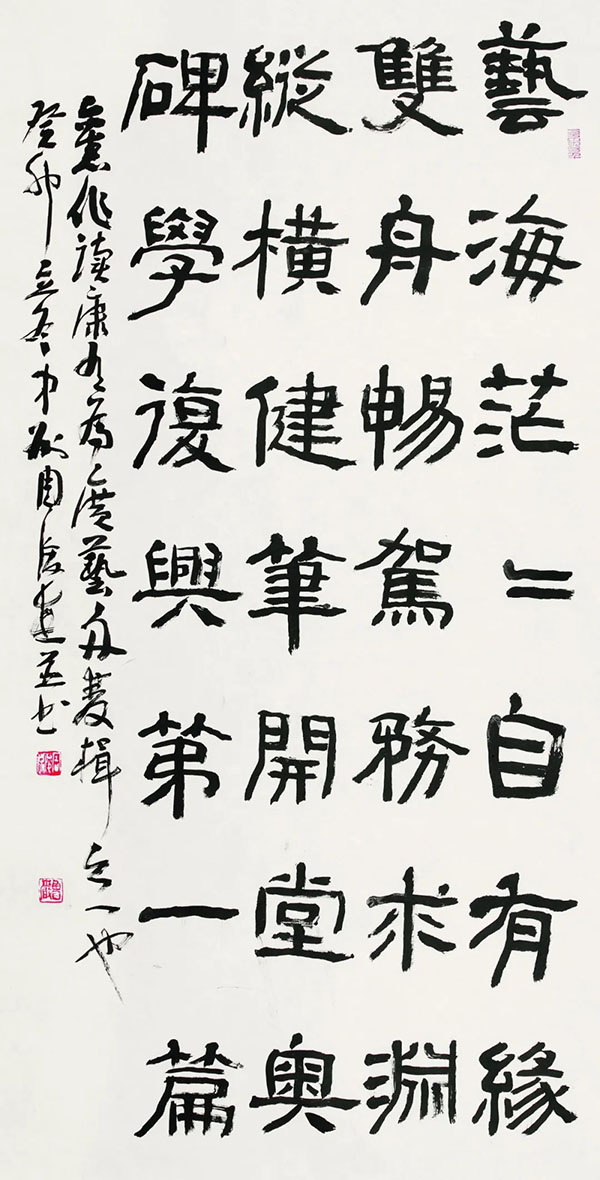 藝海茫〻自有緣
雙舟暢駕務求淵
縱橫健筆開堂奧
碑學復興第一篇
舊作讀康有為廣藝舟雙楫之一也
癸卯立冬中州周俊杰并书